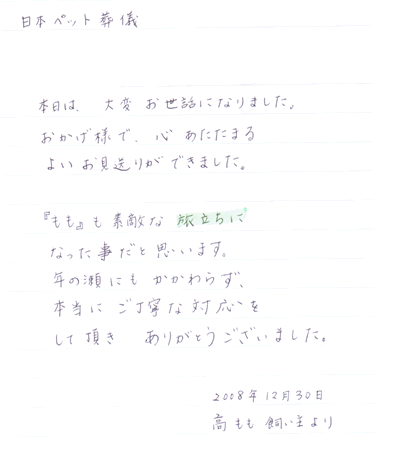 日本ペット葬儀
本日は、大変お世話になりました。
おかげ様で、心あたたまる
よいお見送りができました。
『もも』も素敵な旅立ちに
なった事だと思います。
年の瀬にもかかわらず、
本当にご丁寧な対応を
して頂き ありがとうございました。
2008年12月30日
高 もも 飼い主より